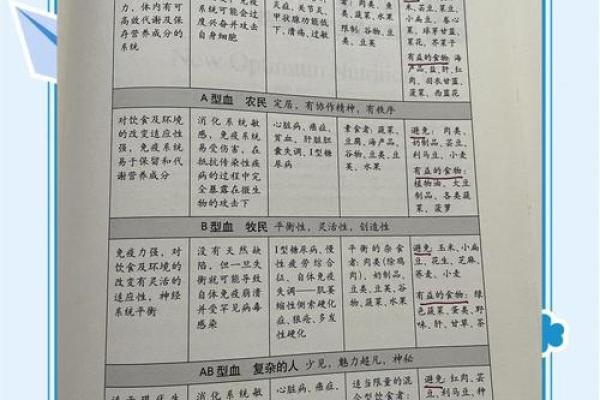 力，体内有可
高效代谢及保
存营养成分的
系统
系统可能会过
度兴奋并攻击
自身细胞
症，关节炎，
甲状腺功能低
下、溃疡，过敏
者：肉类，鱼
类，蔬菜，水果
限制：谷物、
豆类、豆英
菜、球芽甘蓝、
菜花、芥菜子
有益的食物：海
产品、盐、肝、红
肉、羽衣甘蓝、
菠菜、西蓝花
A型血 农民 定居，有协作精神，有秩序
对饮食及环境
的改变适应性
强，免疫系统
易于保留和代
谢营养成分
消化系统敏
感，免疫系统
易受伤害，在
抵抗传染性疾
病的过程中完
全暴露在微生
物的攻击下
心脏病、癌症、
贫血、肝脏胆
囊失调、I型糖
尿病
素食者：蔬菜、
豆腐、海产品、
谷物、豆类、豆
英、水果
避免：肉类、
奶制品、芸豆、
利马豆、小麦
有益的食物：
植物油、大豆
制品、各类蔬
菜、菠萝
B型血 牧民 平衡性，灵活性，创造性
免疫力强，对
饮食及环境的
改变有灵活的
适应性，神经
系统平衡
没有天然缺
陷，但一旦失
衡就可能导致
自体免疫崩溃
并受罕见病毒
感染
I型糖尿病、慢
性疲劳综合
征、自体免疫
失调——肌萎
缩性侧索硬化
症、狼疮、多发
性硬化
平衡的杂食
者：肉类（除鸡
肉）、奶制品、
豆类、豆英、谷
物、蔬菜、水果
避免：玉米、小扁
豆、花生、芝麻、
荞麦、小麦
有益的食物：绿
色蔬菜、蛋类、野
味、肝、甘草、茶
AB型血 复杂的人 少见，魅力超凡，神秘
消化系统敏
心脏病、癌症、
适当限量的混
合型饮食者：
避免：红肉、芸
豆、利马豆、种